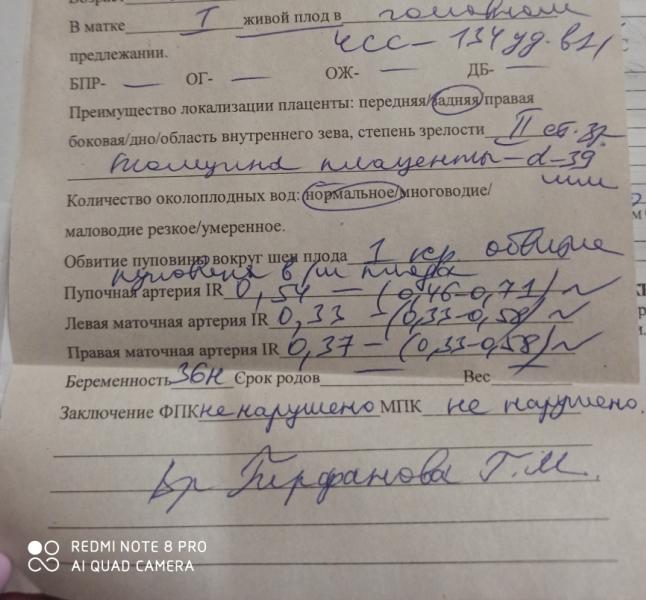 В матке I живой плод в головном
предлежании. ЧСС - 134 уд. в 1
БПР- — ОГ- — ОЖ- — ДБ- —
Преимущество локализации плаценты: передняя/задняя/правая
боковая/дно/область внутреннего зева, степень зрелости II ст. зр
толщина плаценты - d - 39
мм
Количество околоплодных вод: нормальное/многоводие/
маловодие резкое/умеренное.
Обвитие пуповины вокруг шеи плода 1 кр. обвитие
пуповиня в/ш плода
Пупочная артерия IR 0,54 — (0,46-0,71) N
Левая маточная артерия IR 0,33 - (0,33-0,58) N
Правая маточная артерия IR 0,37 - (0,33-0,58) N
Беременность 36н Срок родов — Вес —
Заключение ФПК не нарушено МПК не нарушено.
Вр Гирфанова Г.М.
REDMI NOTE 8 PRO
AI QUAD CAMERA